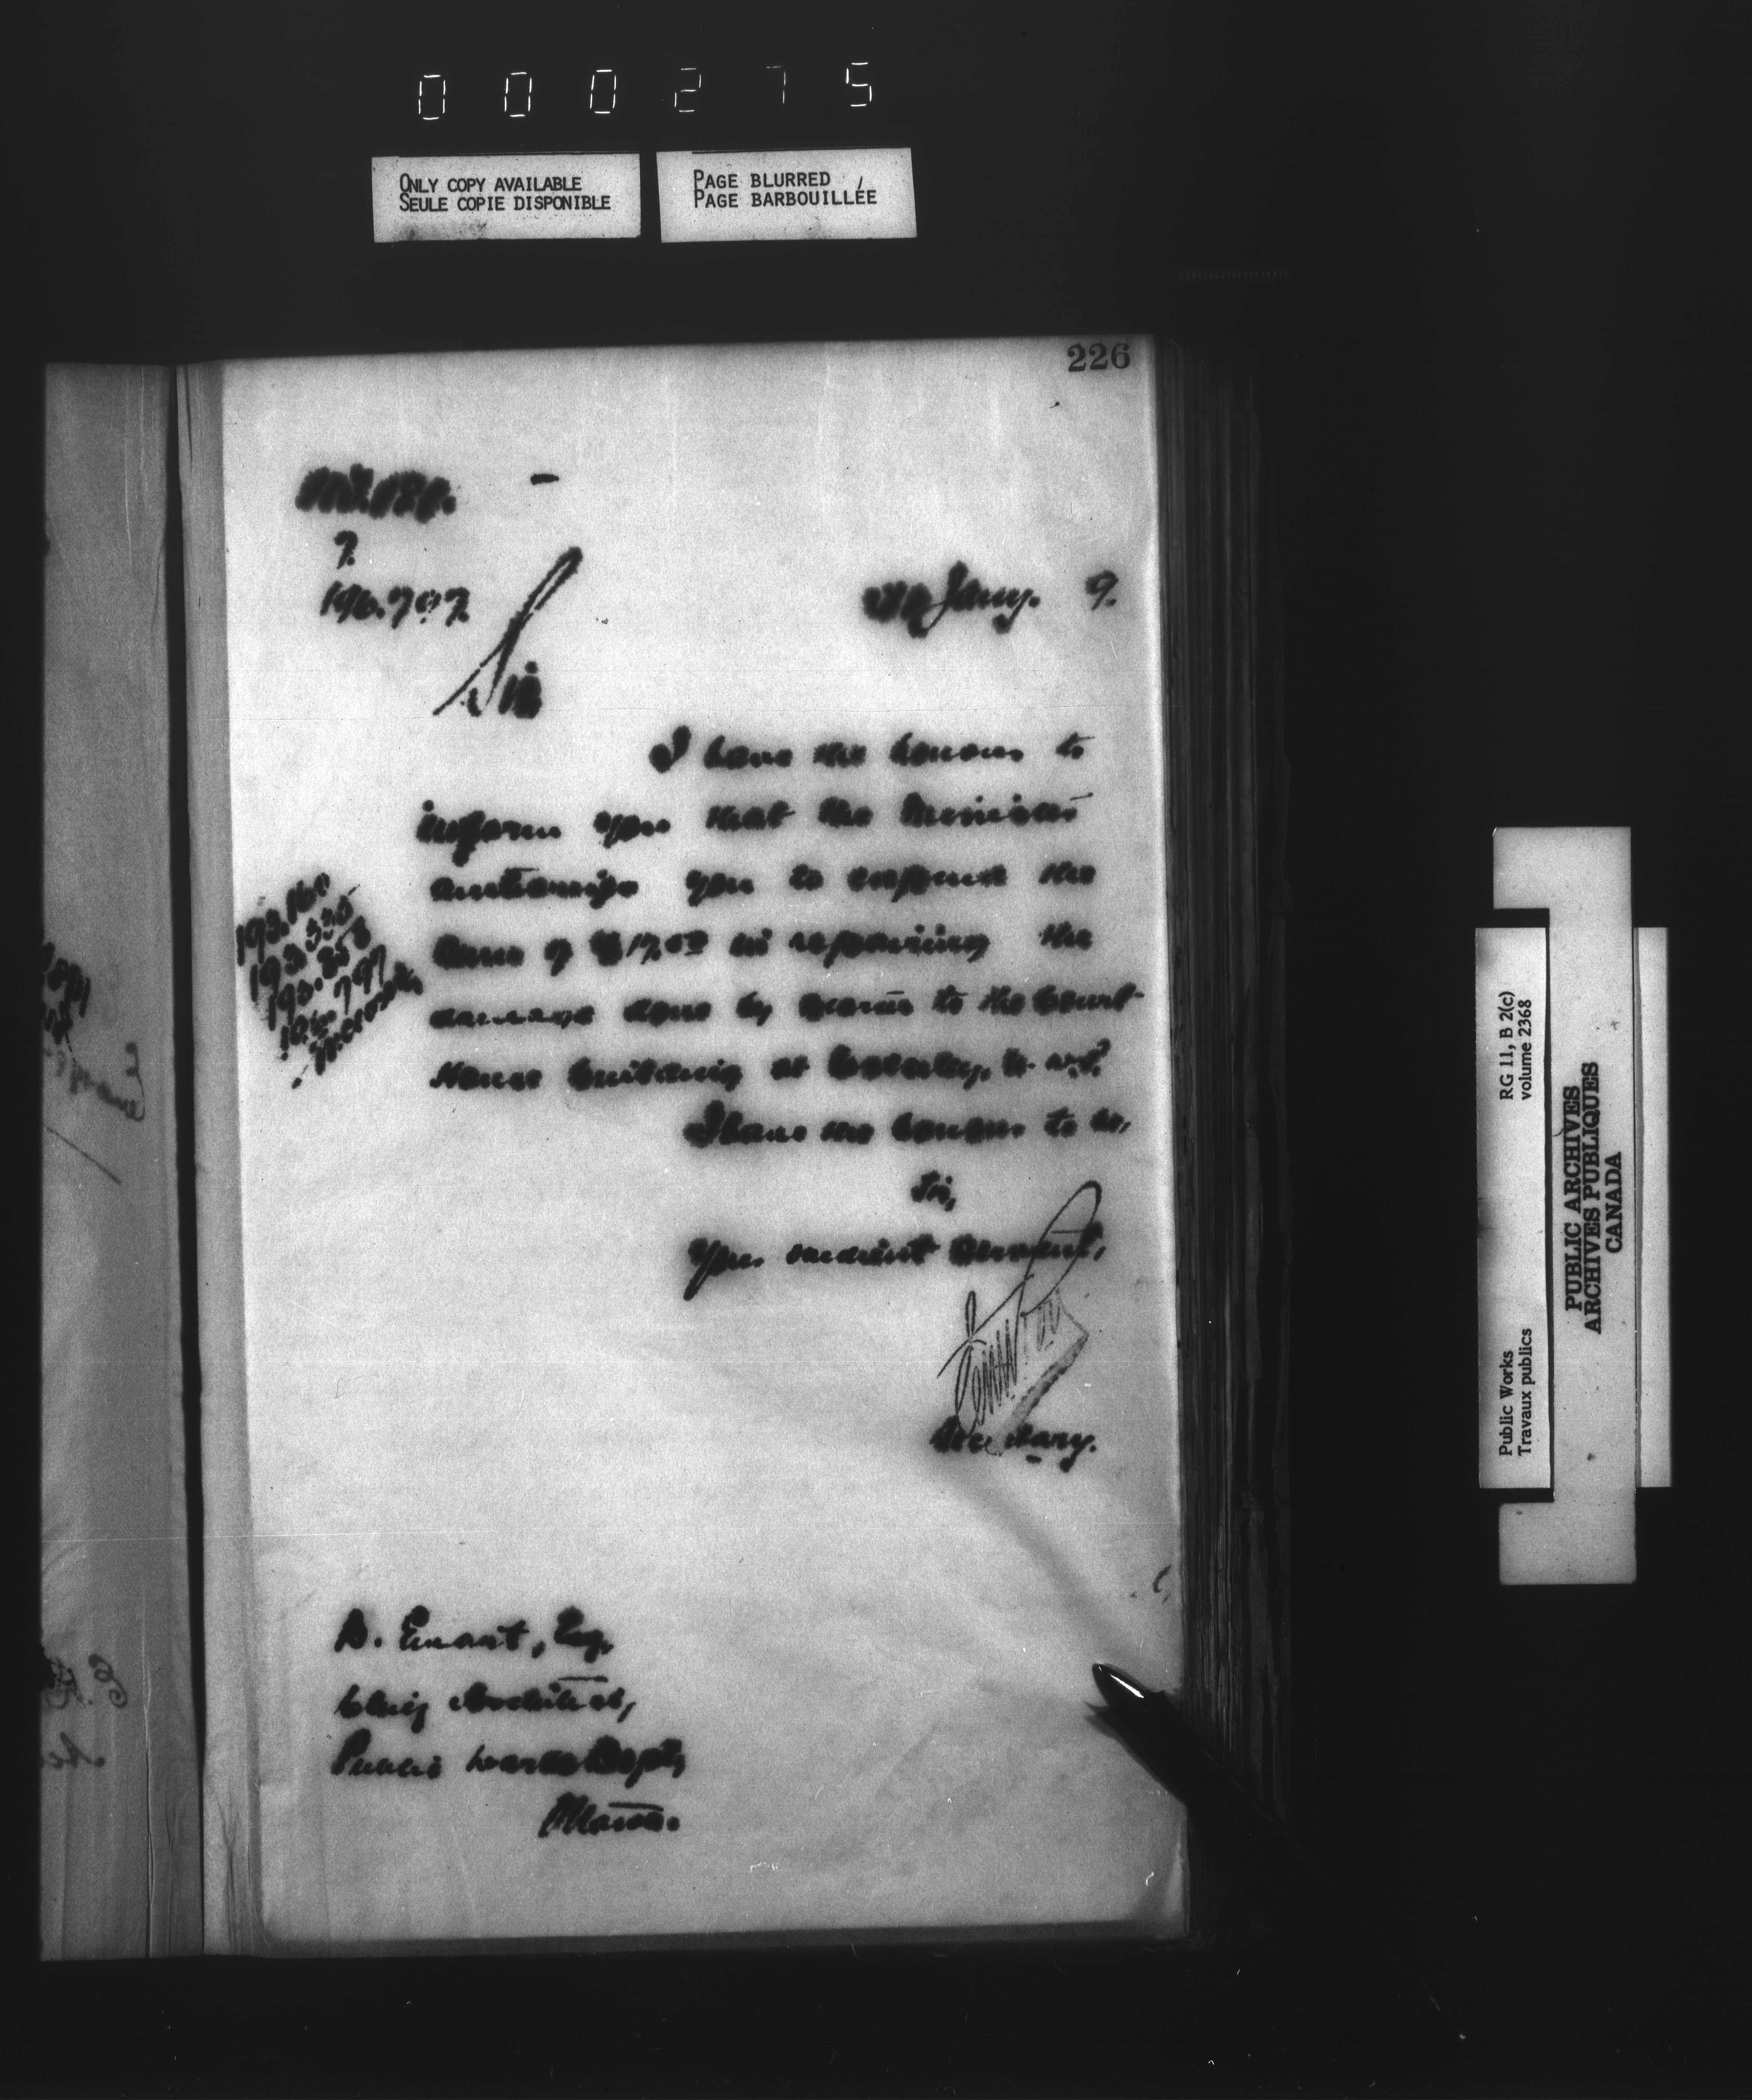 000275
ONLY COPY AVAILABLE
SEULE COPIE DISPONIBLE
PAGE BLURRED
PAGE BARBOUILLÉE
226
7.
196.797.
Jany. 9.
Sir
I have the honour to
inform you that the Minister
authorizes you to expend the
sum of $17.00 in repairing the
damage done by storm to the Court
House building at Calgary, N. W. T.
I have the honour to be,
Sir,
Your obedient servant,
Secretary.
193.160
193.335
195.858
196.797
D. Ewart, Esq.
Chief Architect,
Public Works Dept,
Ottawa.
RG 11, B 2(c)
volume 2368
Public Works
Travaux publics
PUBLIC ARCHIVES
ARCHIVES PUBLIQUES
CANADA